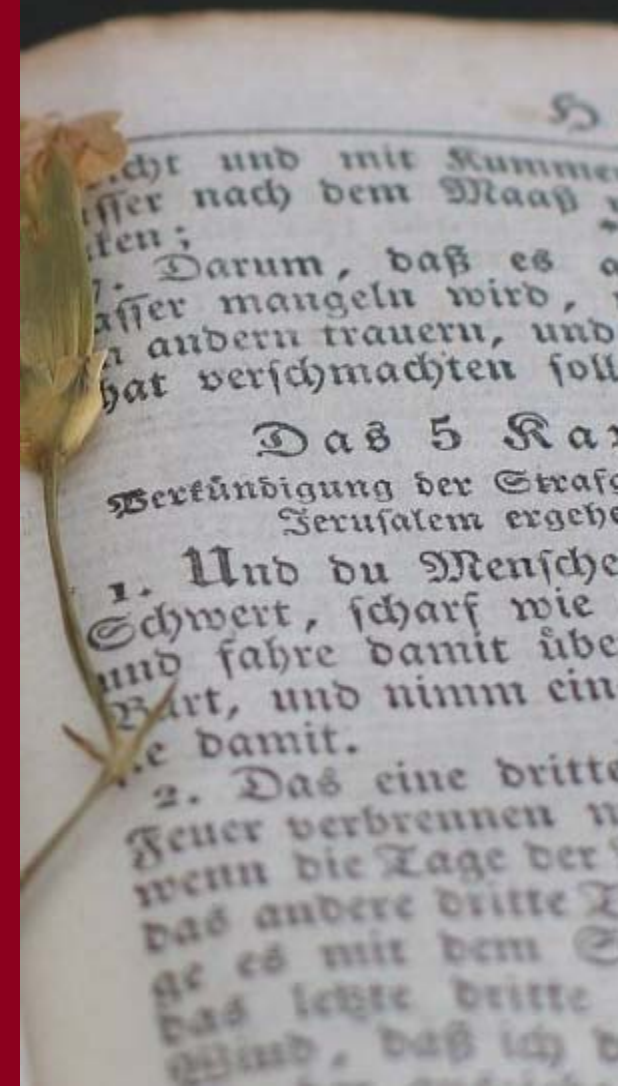 H
icht und mit Kumme
asser nach dem Maaß
ten;
. Darum, daß es a
asser mangeln wird,
n andern trauern, und
hat verschmachten soll
Das 5 Ka
Verkündigung der Straf
Jerusalem ergehe
1. Und du Mensche
Schwert, scharf wie
und fahre damit übe
Bart, und nimm ein
e damit.
2. Das eine dritte
Feuer verbrennen
wenn die Tage der
das andere dritte T
ge es mit dem S
das letzte dritte
Wind, daß ich d